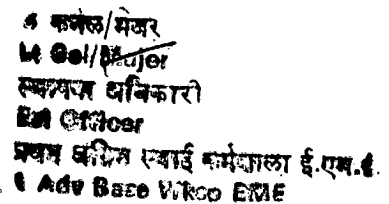 कर्नल/मेजर
Lt Col/Major
स्थापना अधिकारी
Est Officer
प्रथम अग्रिम स्थाई कर्मशाला ई.एम.ई.
1 Adv Base Wksp EME